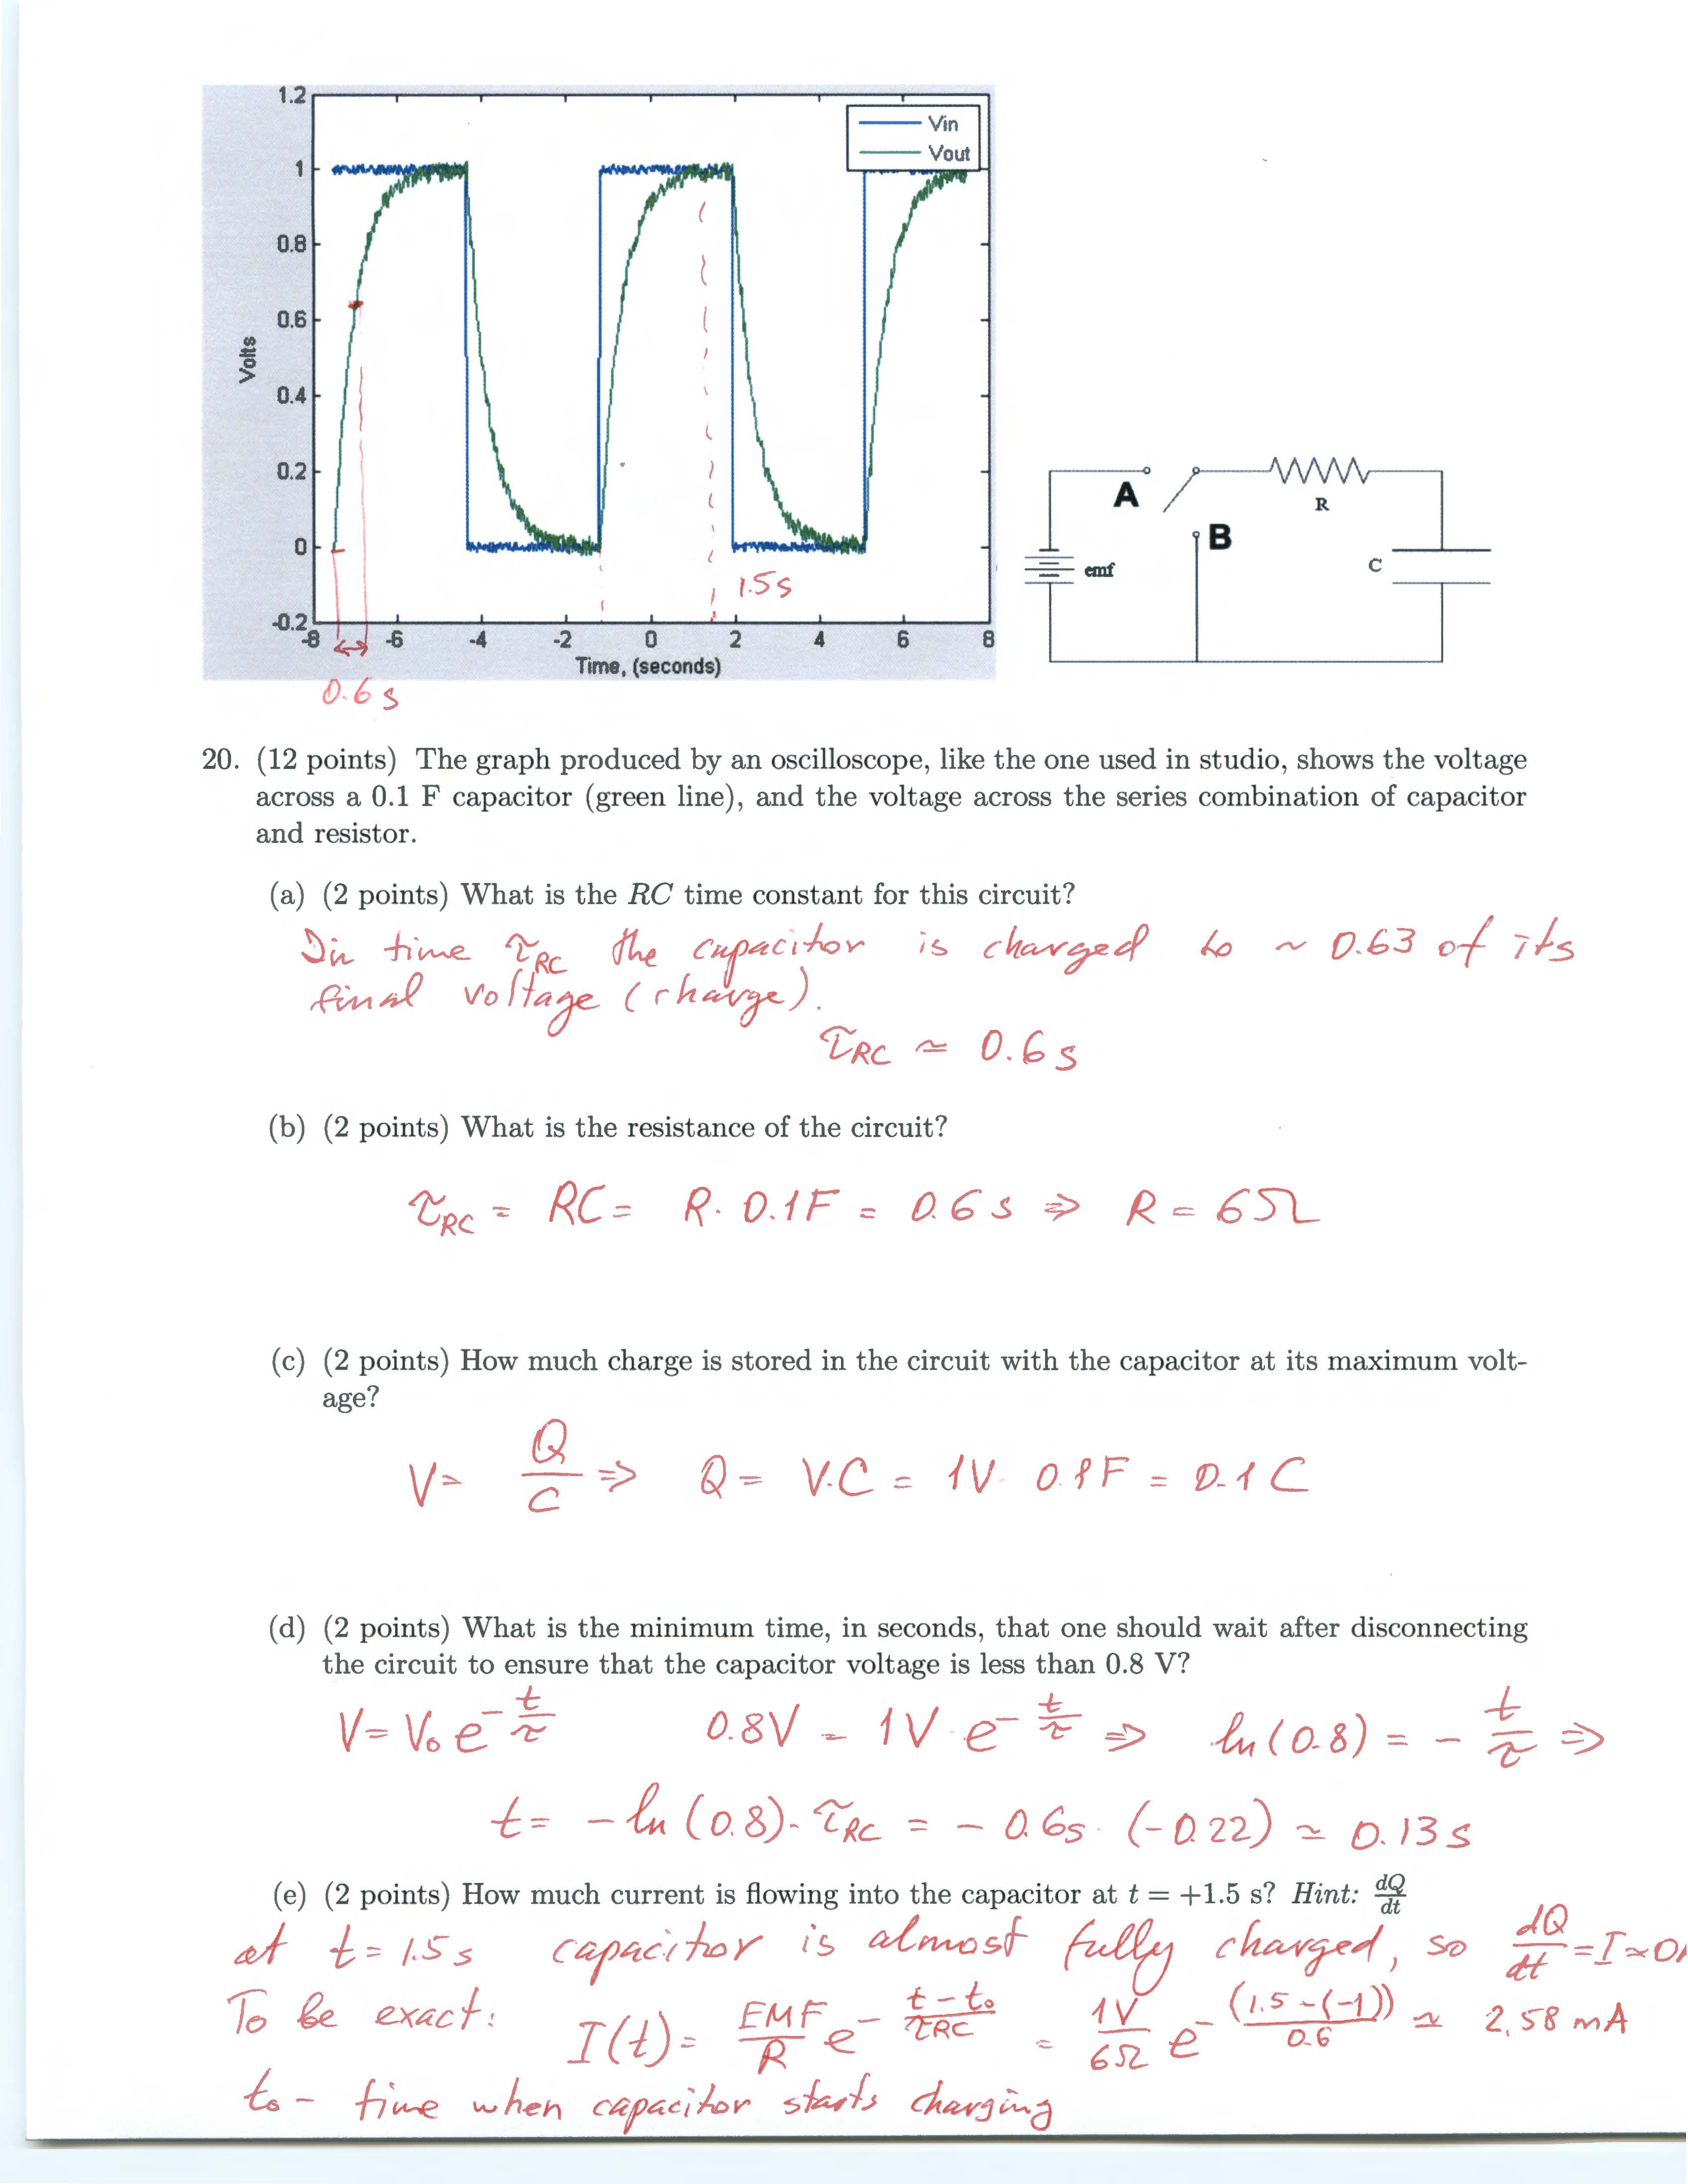 1.2
1
0.8
0.6
0.4
0.2
0
-0.2
Volts
Vin
Vout
-8 -6 -4 -2 0 2 4 6 8
Time, (seconds)
1.5s
0.6 s
A
B
R
C
emf
20. (12 points) The graph produced by an oscilloscope, like the one used in studio, shows the voltage
across a 0.1 F capacitor (green line), and the voltage across the series combination of capacitor
and resistor.
(a) (2 points) What is the RC time constant for this circuit?
In time τRC the capacitor is charged to ~ 0.63 of its
final voltage (charge).
τRC ≃ 0.6 s
(b) (2 points) What is the resistance of the circuit?
τRC = RC = R · 0.1F = 0.6 s ⇒ R = 6Ω
(c) (2 points) How much charge is stored in the circuit with the capacitor at its maximum volt-
age?
V = Q/C ⇒ Q = V·C = 1V · 0.1F = 0.1 C
(d) (2 points) What is the minimum time, in seconds, that one should wait after disconnecting
the circuit to ensure that the capacitor voltage is less than 0.8 V?
V = V₀ e^(-t/τ) 0.8V = 1V · e^(-t/τ) ⇒ ln(0.8) = - t/τ ⇒
t = - ln(0.8) · τRC = - 0.6s · (-0.22) ≃ 0.13 s
(e) (2 points) How much current is flowing into the capacitor at t = +1.5 s? Hint: dQ/dt
at t = 1.5 s capacitor is almost fully charged, so dQ/dt = I ≃ 0A
To be exact: I(t) = EMF/R e^(-(t-t₀)/τRC) = 1V/6Ω e^(-(1.5-(-1))/0.6) ≃ 2.58 mA
t₀ - time when capacitor starts charging